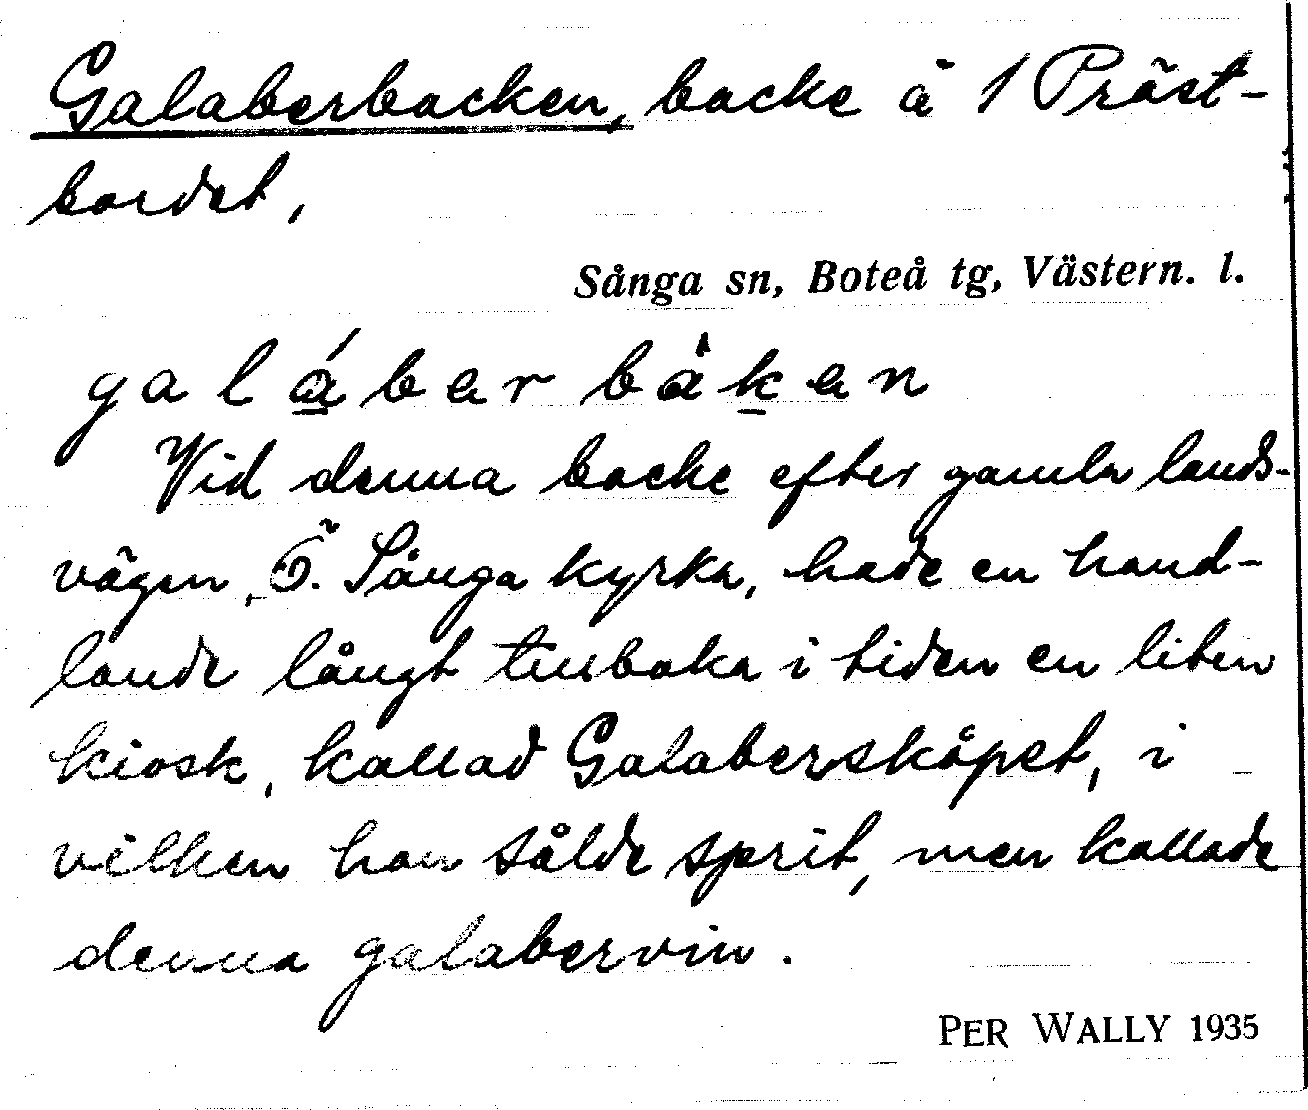 Galaberbacken, backe å 1 Präst-
bordet,
Sånga sn, Boteå tg, Västern. l.
galáberbàken
Vid denna backe efter gamla lands-
vägen, Ö. Sånga kyrka, hade en hand-
lande långt tillbaka i tiden en liten
kiosk, kallad Galaberskåpet, i
vilken han sålde sprit, men kallade
denna galabervin.
PER WALLY 1935